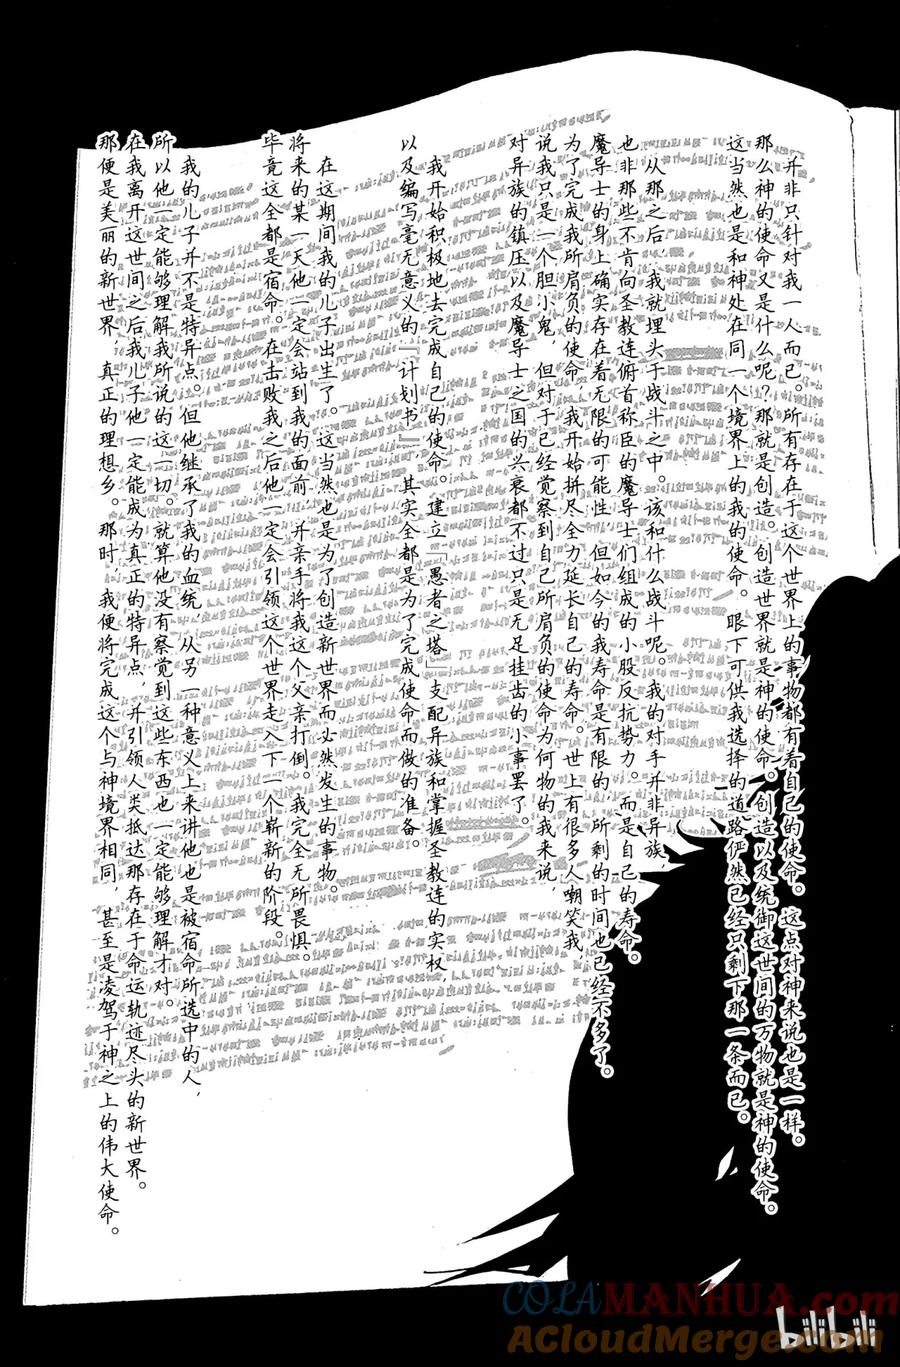 并非只针对我一人而已。所有存在于这个世界上的事物都有着自己的使命。这点对神来说也是一样。
那么神的使命又是什么呢？那就是创造。创造世界就是神的使命。创造以及统御这世间的万物就是神的使命。
这当然也是和神处在同一个境界上的我的使命。眼下可供我选择的道路俨然已经只剩下那一条而已。
从那之后，我就埋头于战斗之中。该和什么战斗呢。我的对手并非异族，
也非那些不肯向圣教连俯首称臣的魔导士们组成的小股反抗势力。而是自己的寿命。
魔导士的身上确实存在着无限的可能性，但如今的我寿命是有限的，所剩的时间也已经不多了。
为了完成我所肩负的使命，我开始拼尽全力延长自己的寿命。世上有很多人嘲笑我，
说我只是一个胆小鬼，但对于已经觉察到自己所肩负的使命为何物的我来说，
对异族的镇压以及魔导士之国的兴衰都不过只是无足挂齿的小事罢了。
我开始积极地去完成自己的使命。建立「愚者之塔」支配异族和掌握圣教连的实权，
以及编写毫无意义的『计划书』，其实全都是为了完成使命而做的准备。
在这期间我的儿子出生了。这当然也是为了创造新世界而必然发生的事物。
将来的某一天他一定会站到我的面前，并亲手将我这个父亲打倒。我完全无所畏惧。
毕竟这全都是宿命。在击败我之后他一定会引领这个世界走入下一个崭新的阶段。
我的儿子并不是特异点。但他继承了我的血统，从另一种意义上来讲他也是被宿命所选中的人，
所以他一定能够理解我所说的这一切。就算他没有察觉到这些东西也一定能够理解才对。
在我离开这世间之后我儿子他一定能成为真正的特异点，并引领人类抵达那存在于命运轨迹尽头的新世界。
那便是美丽的新世界，真正的理想乡。那时，我便将完成这个与神境界相同，甚至是凌驾于神之上的伟大使命。
COLAMANHUA.com
ACloudMerge.com
bilibili